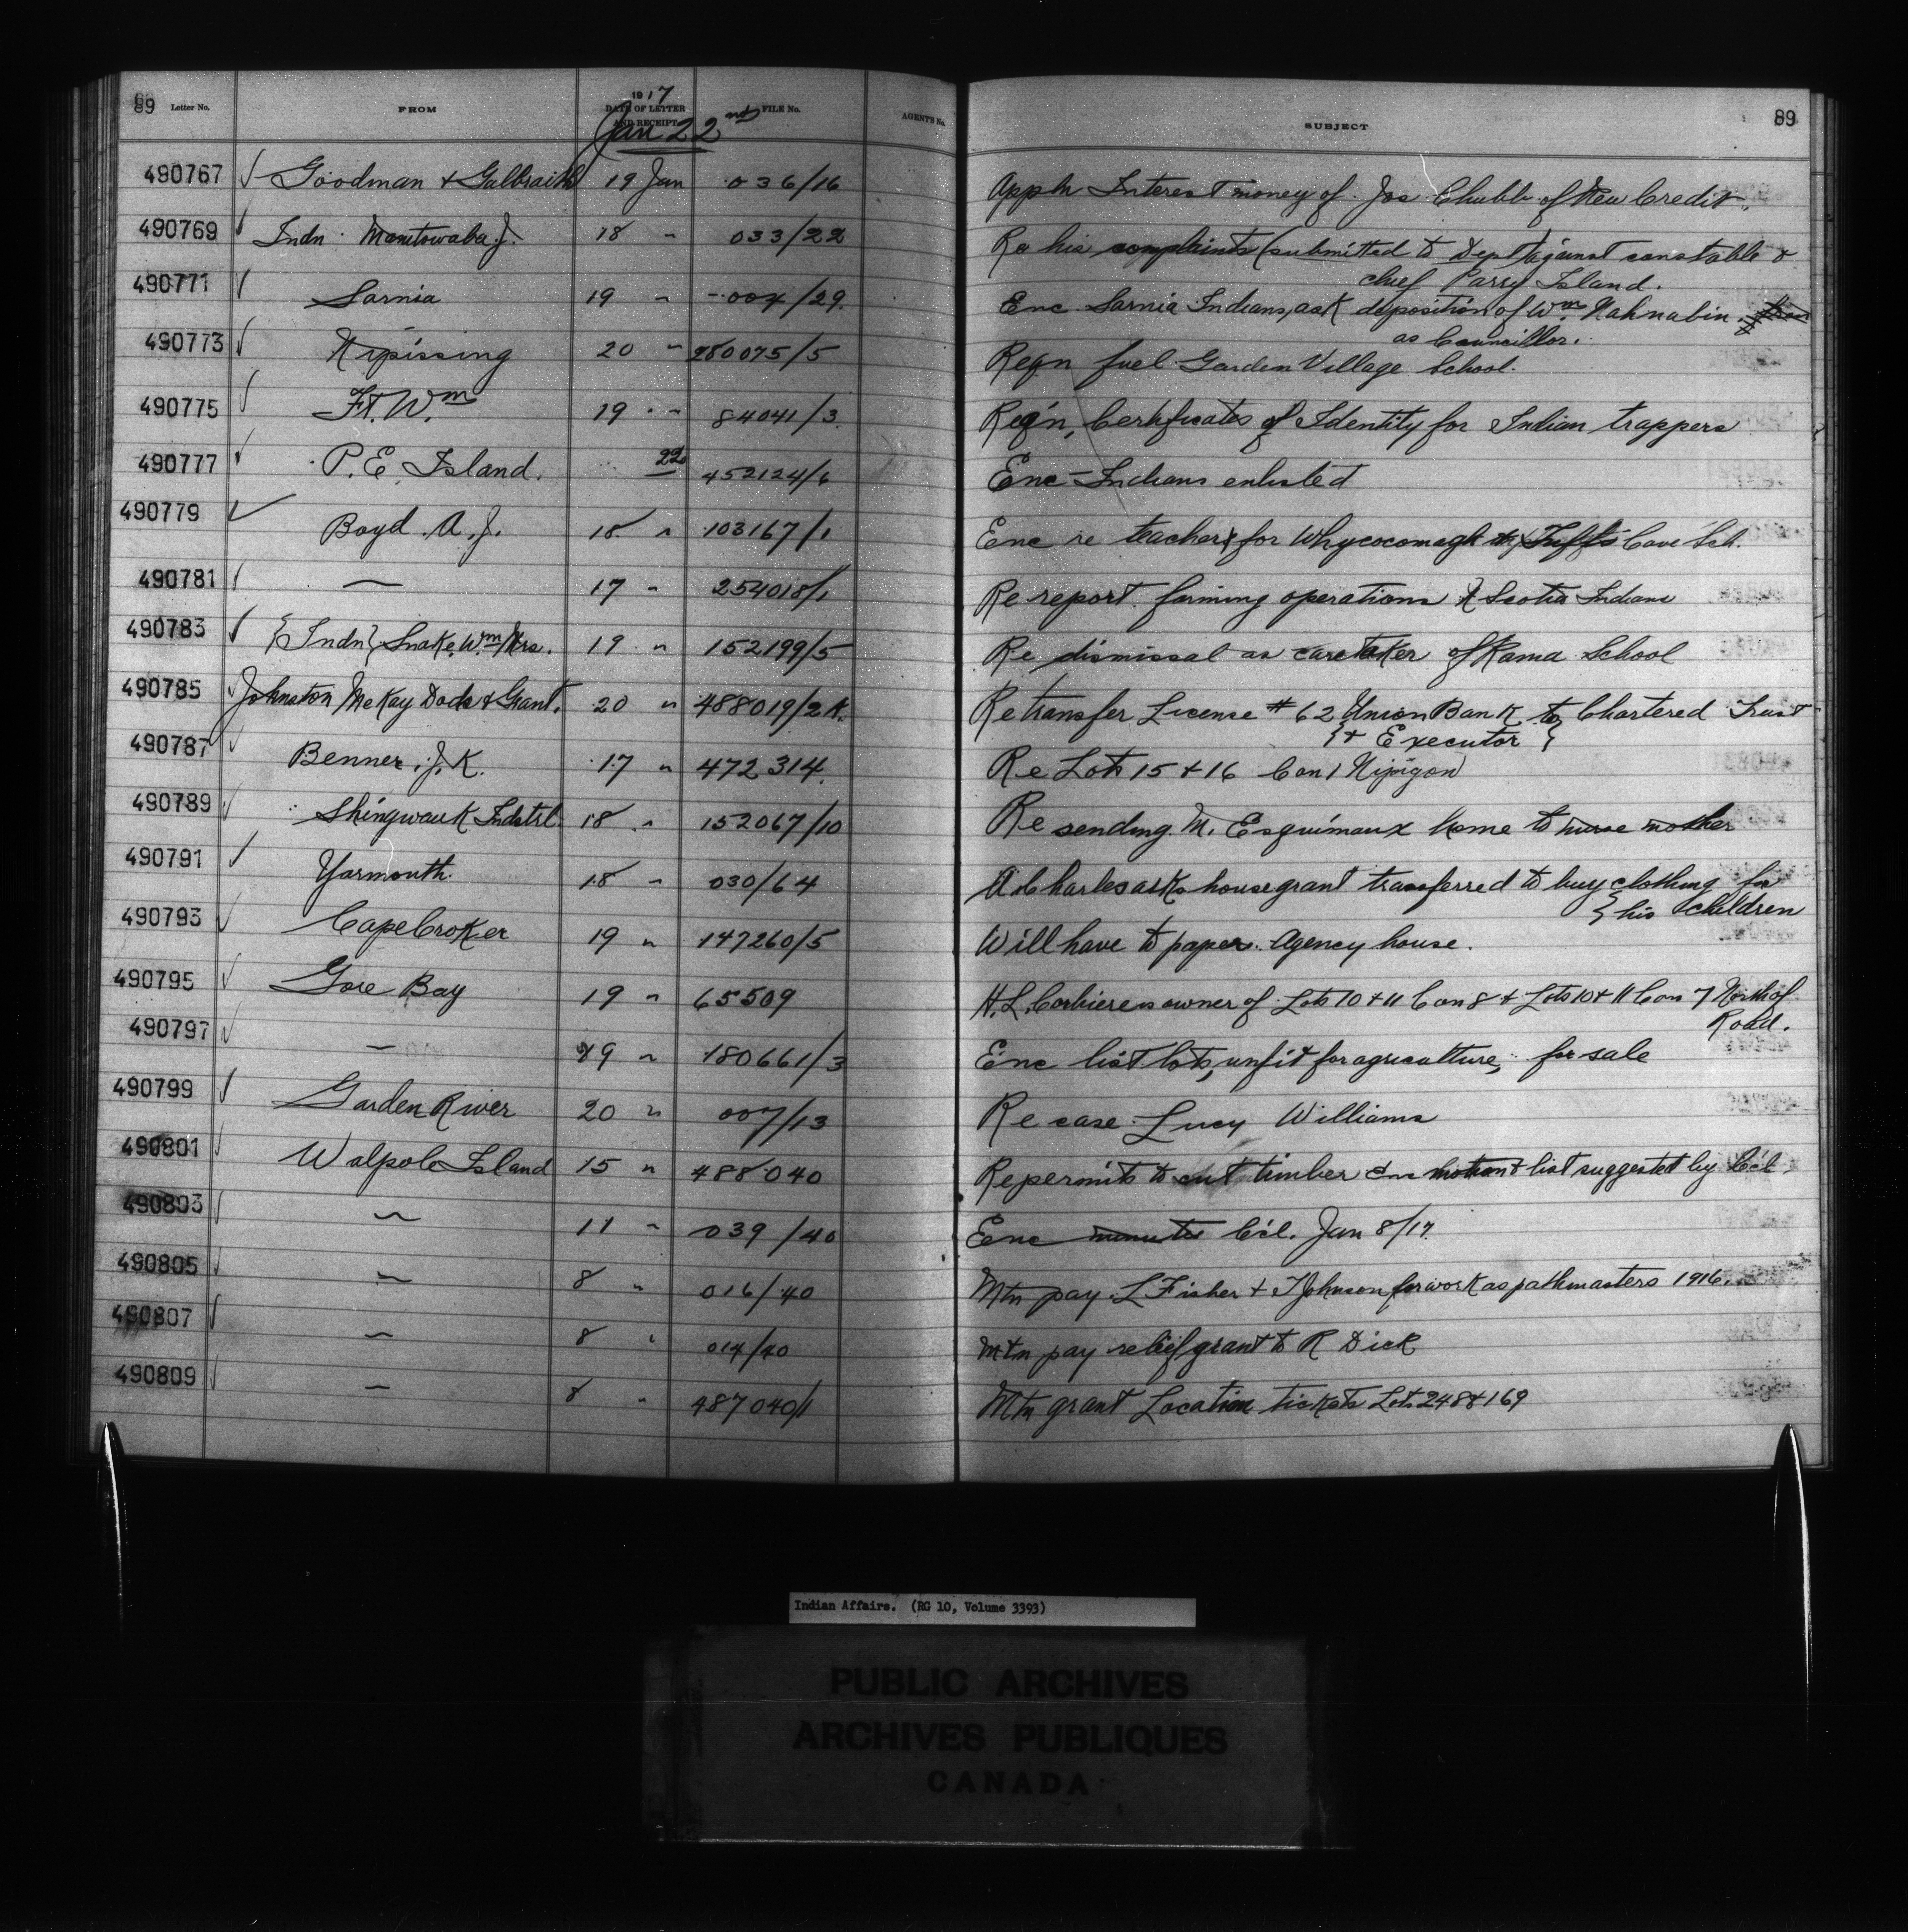 89 Letter No. FROM 1917 DATE OF LETTER AND RECEIPT FILE No. AGENT'S No. SUBJECT 89
Jan 22nd
490767 ✓ Goodman & Galbraith 19 Jan 036/16 Appln Interest money of Jos Chubb of New Credit.
490769 ✓ Indn Manitowaba J. 18 " 033/22 Re his complaints (submitted to Dept) against constable &
chief Parry Island.
490771 ✓ Sarnia 19 " 004/29 Enc Sarnia Indians, ask deposition of Wm. Nahnabin
as Councillor.
490773 ✓ Nipissing 20 " 280075/5 Reqn fuel Garden Village School.
490775 ✓ Ft. Wm 19 " 84041/3 Reqn, Certificates of Identity for Indian trappers
490777 ✓ P.E. Island. 22 452124/6 Enc - Indians enlisted
490779 ✓ Boyd A.J. 18 " 103167/1 Enc re teachers for Whycocomagh & Tufts Cove Sch.
490781 ✓ — 17 " 254018/1 Re report farming operations N Scotia Indians
490783 ✓ {Indn} Snake, Wm Mrs. 19 " 152199/5 Re dismissal as caretaker of Rama School
490785 ✓ Johnston McKay Dods & Grant. 20 " 488019/2A. Re transfer License # 62 Union Bank to Chartered Trust
{& Executor}
490787 ✓ Benner, J.K. 17 " 472314. Re Lots 15 & 16 Con 1 Nipigon
490789 ✓ Shingwauk Indstrl 18 " 152067/10 Re sending M. Esquimaux home to nurse mother
490791 ✓ Yarmouth. 18 " 030/64 A. Charles asks house grant transferred to buy clothing for
{his children
490793 ✓ Cape Croker 19 " 147260/5 Will have to paper Agency house.
490795 ✓ Gore Bay 19 " 65509 H.L. Corbiere is owner of Lots 10 & 11 Con 8 & Lots 10 & 11 Con 7 North of
Road.
490797 ✓ — 19 " 180661/3 Enc list lots, unfit for agriculture, for sale
490799 ✓ Garden River 20 " 007/13 Re case Lucy Williams
490801 ✓ Walpole Island 15 " 488040 Re permits to cut timber Enc motion & list suggested by Ccl.
490803 ✓ — 11 " 039/40 Enc minutes Ccl. Jan 8/17.
490805 ✓ — 8 " 016/40 Mtn pay L Fisher & T Johnson for work as pathmasters 1916.
490807 ✓ — 8 " 014/40 Mtn pay relief grant to R Dick
490809 ✓ — 8 " 487040/1 Mtn grant Location tickets Lots 248 & 169
Indian Affairs. (RG 10, Volume 3393)
PUBLIC ARCHIVES
ARCHIVES PUBLIQUES
CANADA